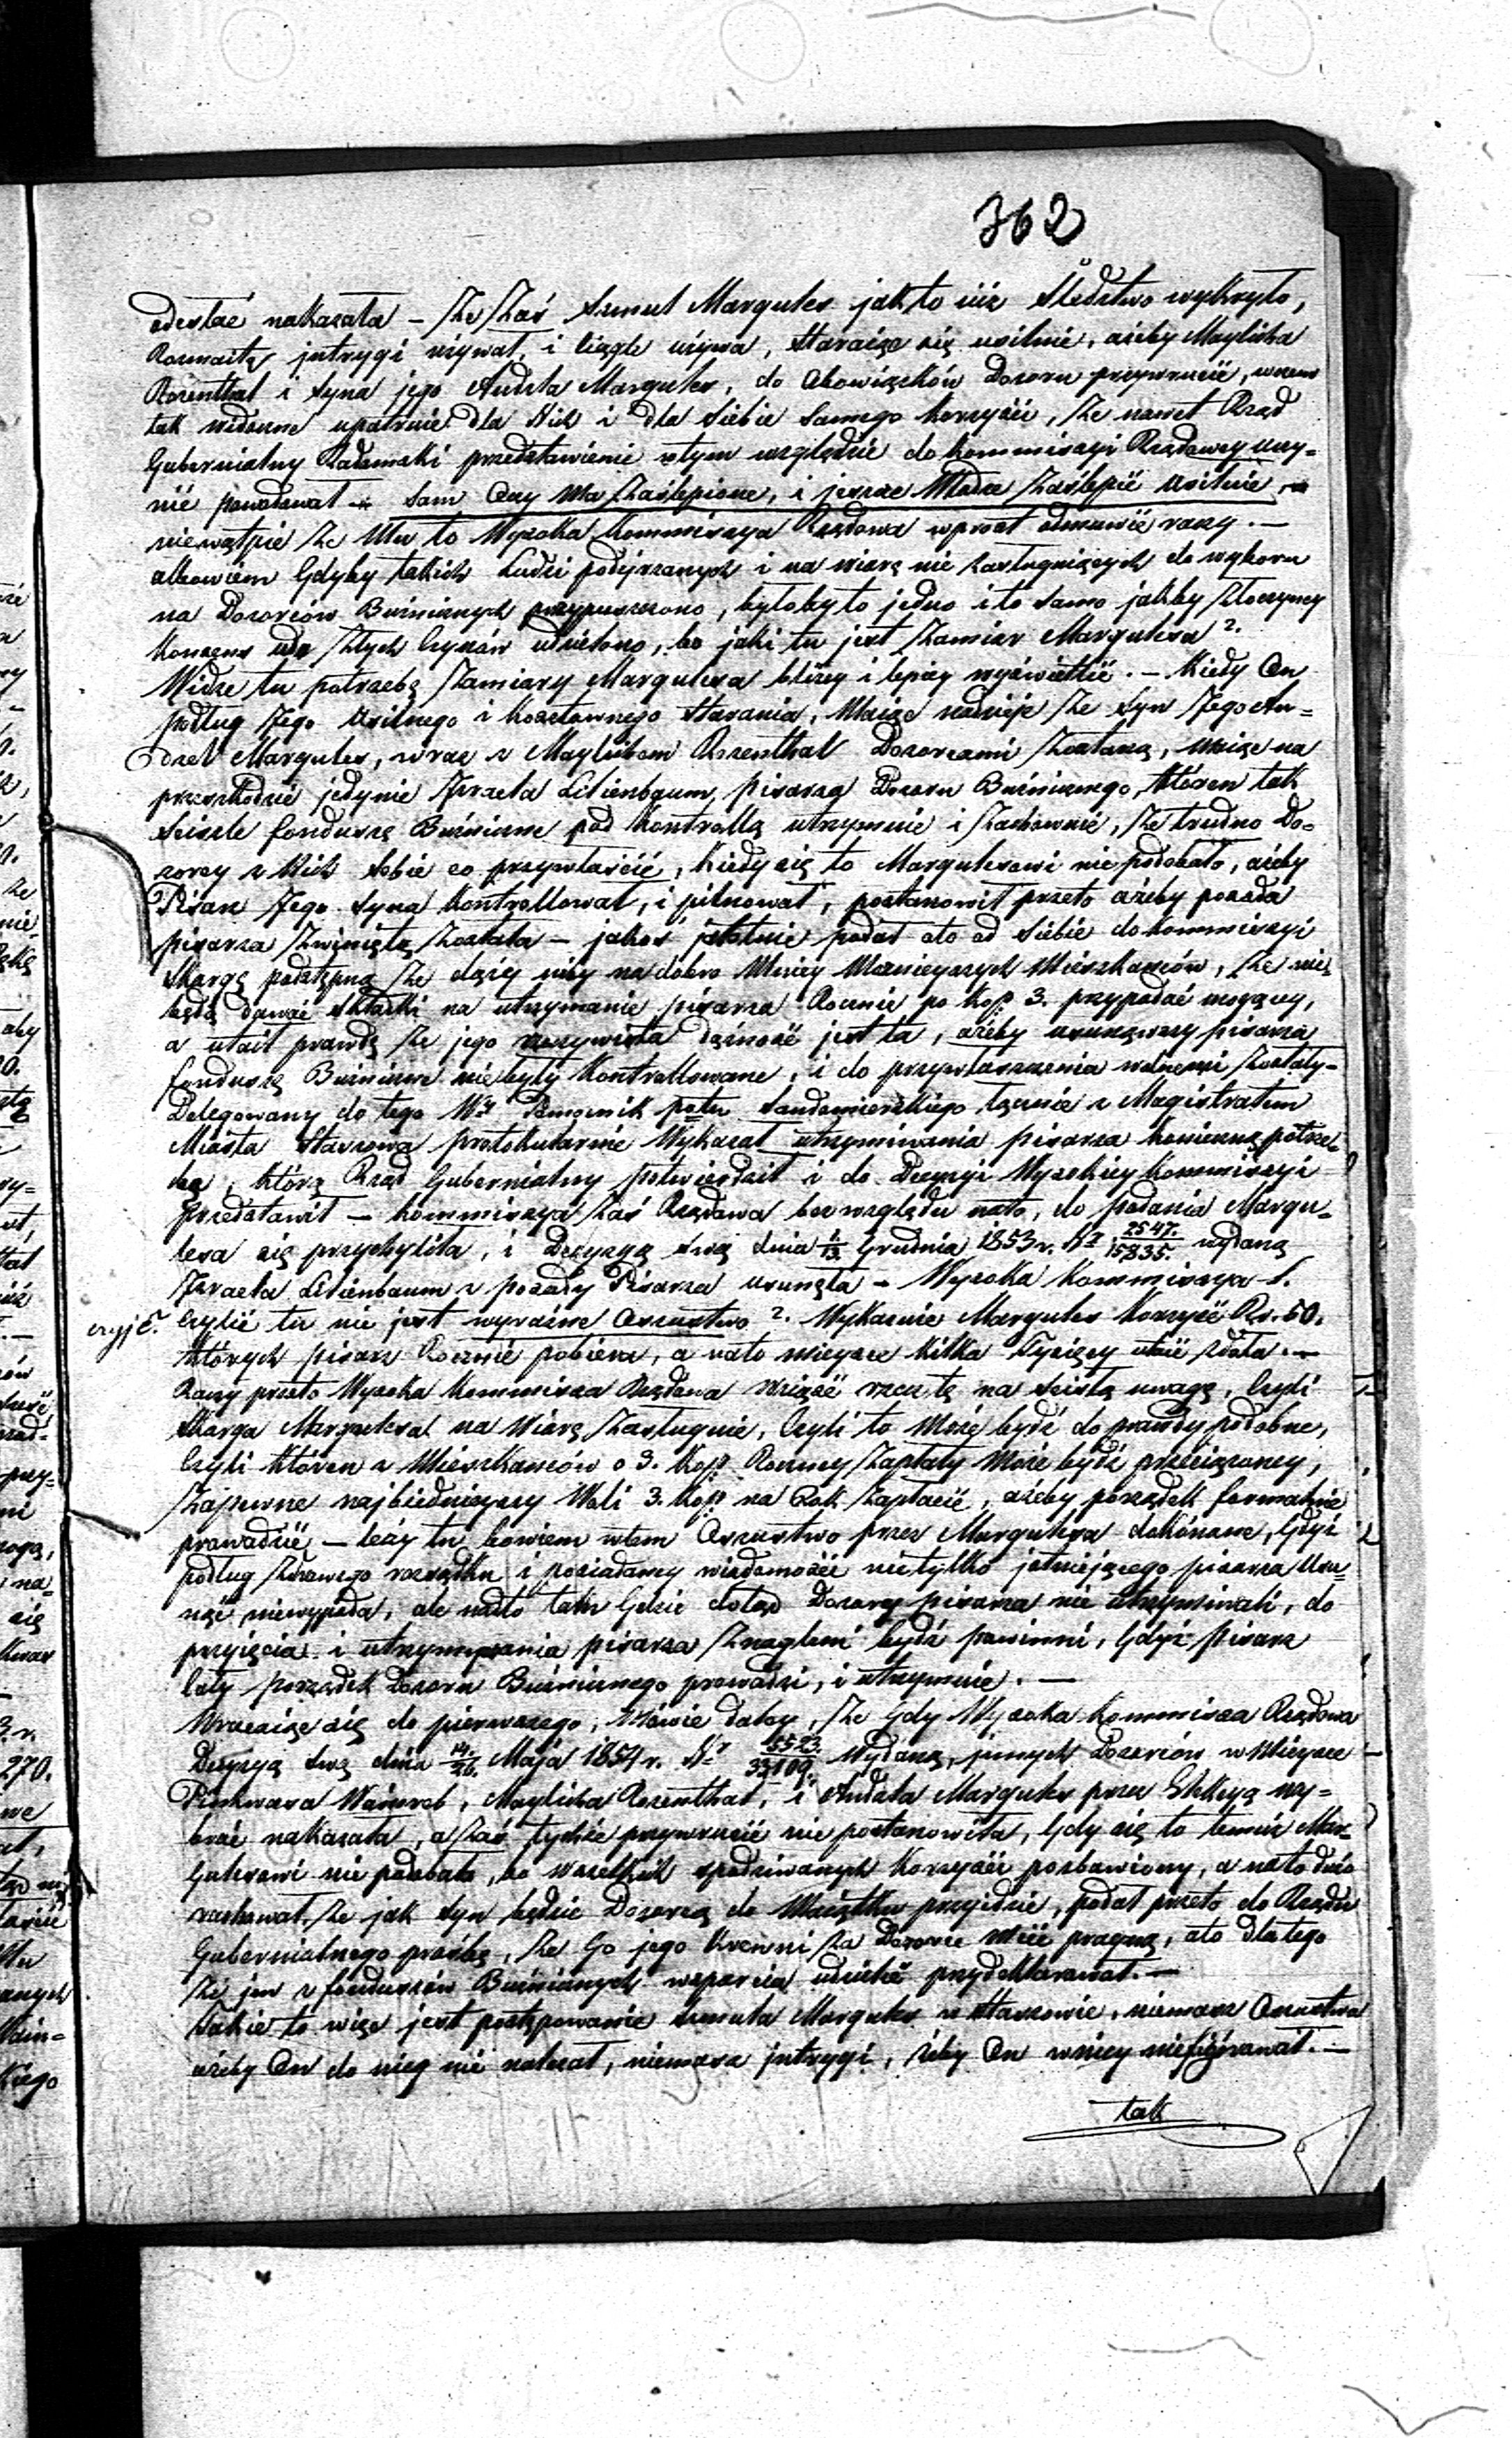 362
odesłać nakazała – że zaś Szmul Margules jak to już Śledztwo wykryło,
Rozmaite jntrygi używał, i ciągle używa, Staraiąc się usilnie, ażeby Maylicha
Rozenthal i Syna jego Audsla Margules, do Obowiązków Dozoru przywrucić, w czem
tak widoczne upatruie dla Nich i dla Siebie Samego korzyści, że nawet Rząd
Gubernialny Radomski przedstawienie w tym względzie do Kommissyi Rządowey uczy=
nić powodował – Sam Oczy Ma zaślepione, i jeszcze Władze zaślepić usiłuie,
niewątpię że Mu to Wysoka Kommissya Rządowa wprost odmówić raczy. –
albowiem Gdyby takich Ludzi podejrzanych i na wiarę nie zasługuiących do wyboru
na Dozorców Bużniczych przypuszczono, byłoby to jedno i to samo jakby złoczyńcy
konsens do złych czynów udzielono, bo jaki tu jest zamiar Margulesa?
Widzę tu potrzebę zamiary Margulesa bliżey i lepiey wyświetlić. – Kiedy On
podług Jego usilnego i kosztownego Starania, Maiąc nadzieję że Syn Jego Au=
dzel Margules, wraz z Maylichem Rozenthal Dozorcami zostaną, maiąc na
przeszkodzie jedynie Jzraela Lilienbaum pisarza Dozoru Bużniczego, który tak
ściśle fundusze Bużnicze pod kontrollą utrzymuie i zachowuie, że trudno Do=
zorcy z Nich Sobie co przywłaścić, kiedy się to Margulesowi nie podobało, ażeby
Pisarz Jego Syna kontrollował, i pilnował, postanowił przeto ażeby posada
pisarza zwinięta została – jakoś jstotnie podał oto od Siebie do Kommissyi
Skargę podstępną że dąży niby na dobro Mniey Możnieyszych Mieszkańców, że nie
będą dawać składki na utrzymanie pisarza Rocznie po kop 3. przypadać mogącey,
a utaił prawdę że jego rzeczywista dążność jest ta, ażeby usunąwszy pisarza
fundusze Bużnicze nie były kontrollowane, i do przywłaszczenia wolnemi zostały –
Delegowany do tego Wy Pomocnik pttu Sandomierskiego łącznie z Magistratem
Miasta Staszowa protokularnie Wykazał utrzymiwania pisarza konieczną potrze=
bę, którą Rząd Gubernialny potwierdził i do Decyzyi Wysokiey Kommissyi
Przedstawił – Kommissya zaś Rządowa bez względu na to, do podania Margu=
lesa się przychyliła, i Decyzyą swą dnia 1/13. Grudnia 1853 r. No 2547./15835. wydaną
Jzraela Lilienbaum z posady Pisarza usunęła – Wysoka Kommissya S.
czyjć. Czyliż tu nie jest wyraźne Oszustwo?. Wykazuie Margules korzyść Rs. 60.
których pisarz Rocznie pobiera, a na to mieysce kilka Tysięcy utaić zdoła. –
Raczy przeto Wysoka Kommissya Rządowa wziąść rzecz tę na ścisłą uwagę, Czyli
Skarga Margulesa na Wiarę zasługuie, Czyli to Może bydź do prawdy podobne,
Czyli któren z Mieszkańców o 3. kop Roczney zapłaty Może bydź przeciążoney,
zapewne najbiednieyszy Woli 3. kop na Rok zapłacić, ażeby porządek formalnie
prowadzić – leży tu bowiem w tem Oszustwo przez Margulesa dokonane, Gdyż
podług zdrowego rozsądku i posiadaney wiadomości nietylko jstniejącego pisarza Usu=
nąć niewypada, ale nadto tam Gdzie dotąd Dozory pisarza nie utrzymiwali, do
przyjęcia i utrzymywania pisarza znagleni bydź powinni, Gdyż Pisarz
Cały porządek Dozoru Bużniczego prowadzi, i utrzymuie. –
Wracaiąc się do pierwszego, Mówię daley, że Gdy Wysoka Kommissya Rządowa
Decyzyą swą dnia 14./26. Maja 1854 r. No 5523./33109. Wydaną, jnnych Dozorców w Mieysce
Pinkwasa Wajnreb, Maylicha Rozenthal, i Audzla Margules przez Elekcyą wy=
brać nakazała, a zaś tychże przywrucić nie postanowiła, Gdy się to temuż Mar=
Gulesowi nie podobało, bo wszelkich spodziwanych korzyści pozbawiony, a na to dużo
rachował, że jak Syn będzie Dozorcą do Maiątku przyjdzie, podał przeto do Rządu
Gubernialnego prośbę, że Go jego krewni za Dozorce mieć pragną, a to dla tego
że jm z funduszów Bużniczych wsparcia udzielić przydeklarował. –
Takie to więc jest postępowanie Szmula Margules w Staszowie, niemasz Oszustwa
ażeby On do nieg nie należał, niemasz jntrygi, żeby On w niey niefigurował. –
tak